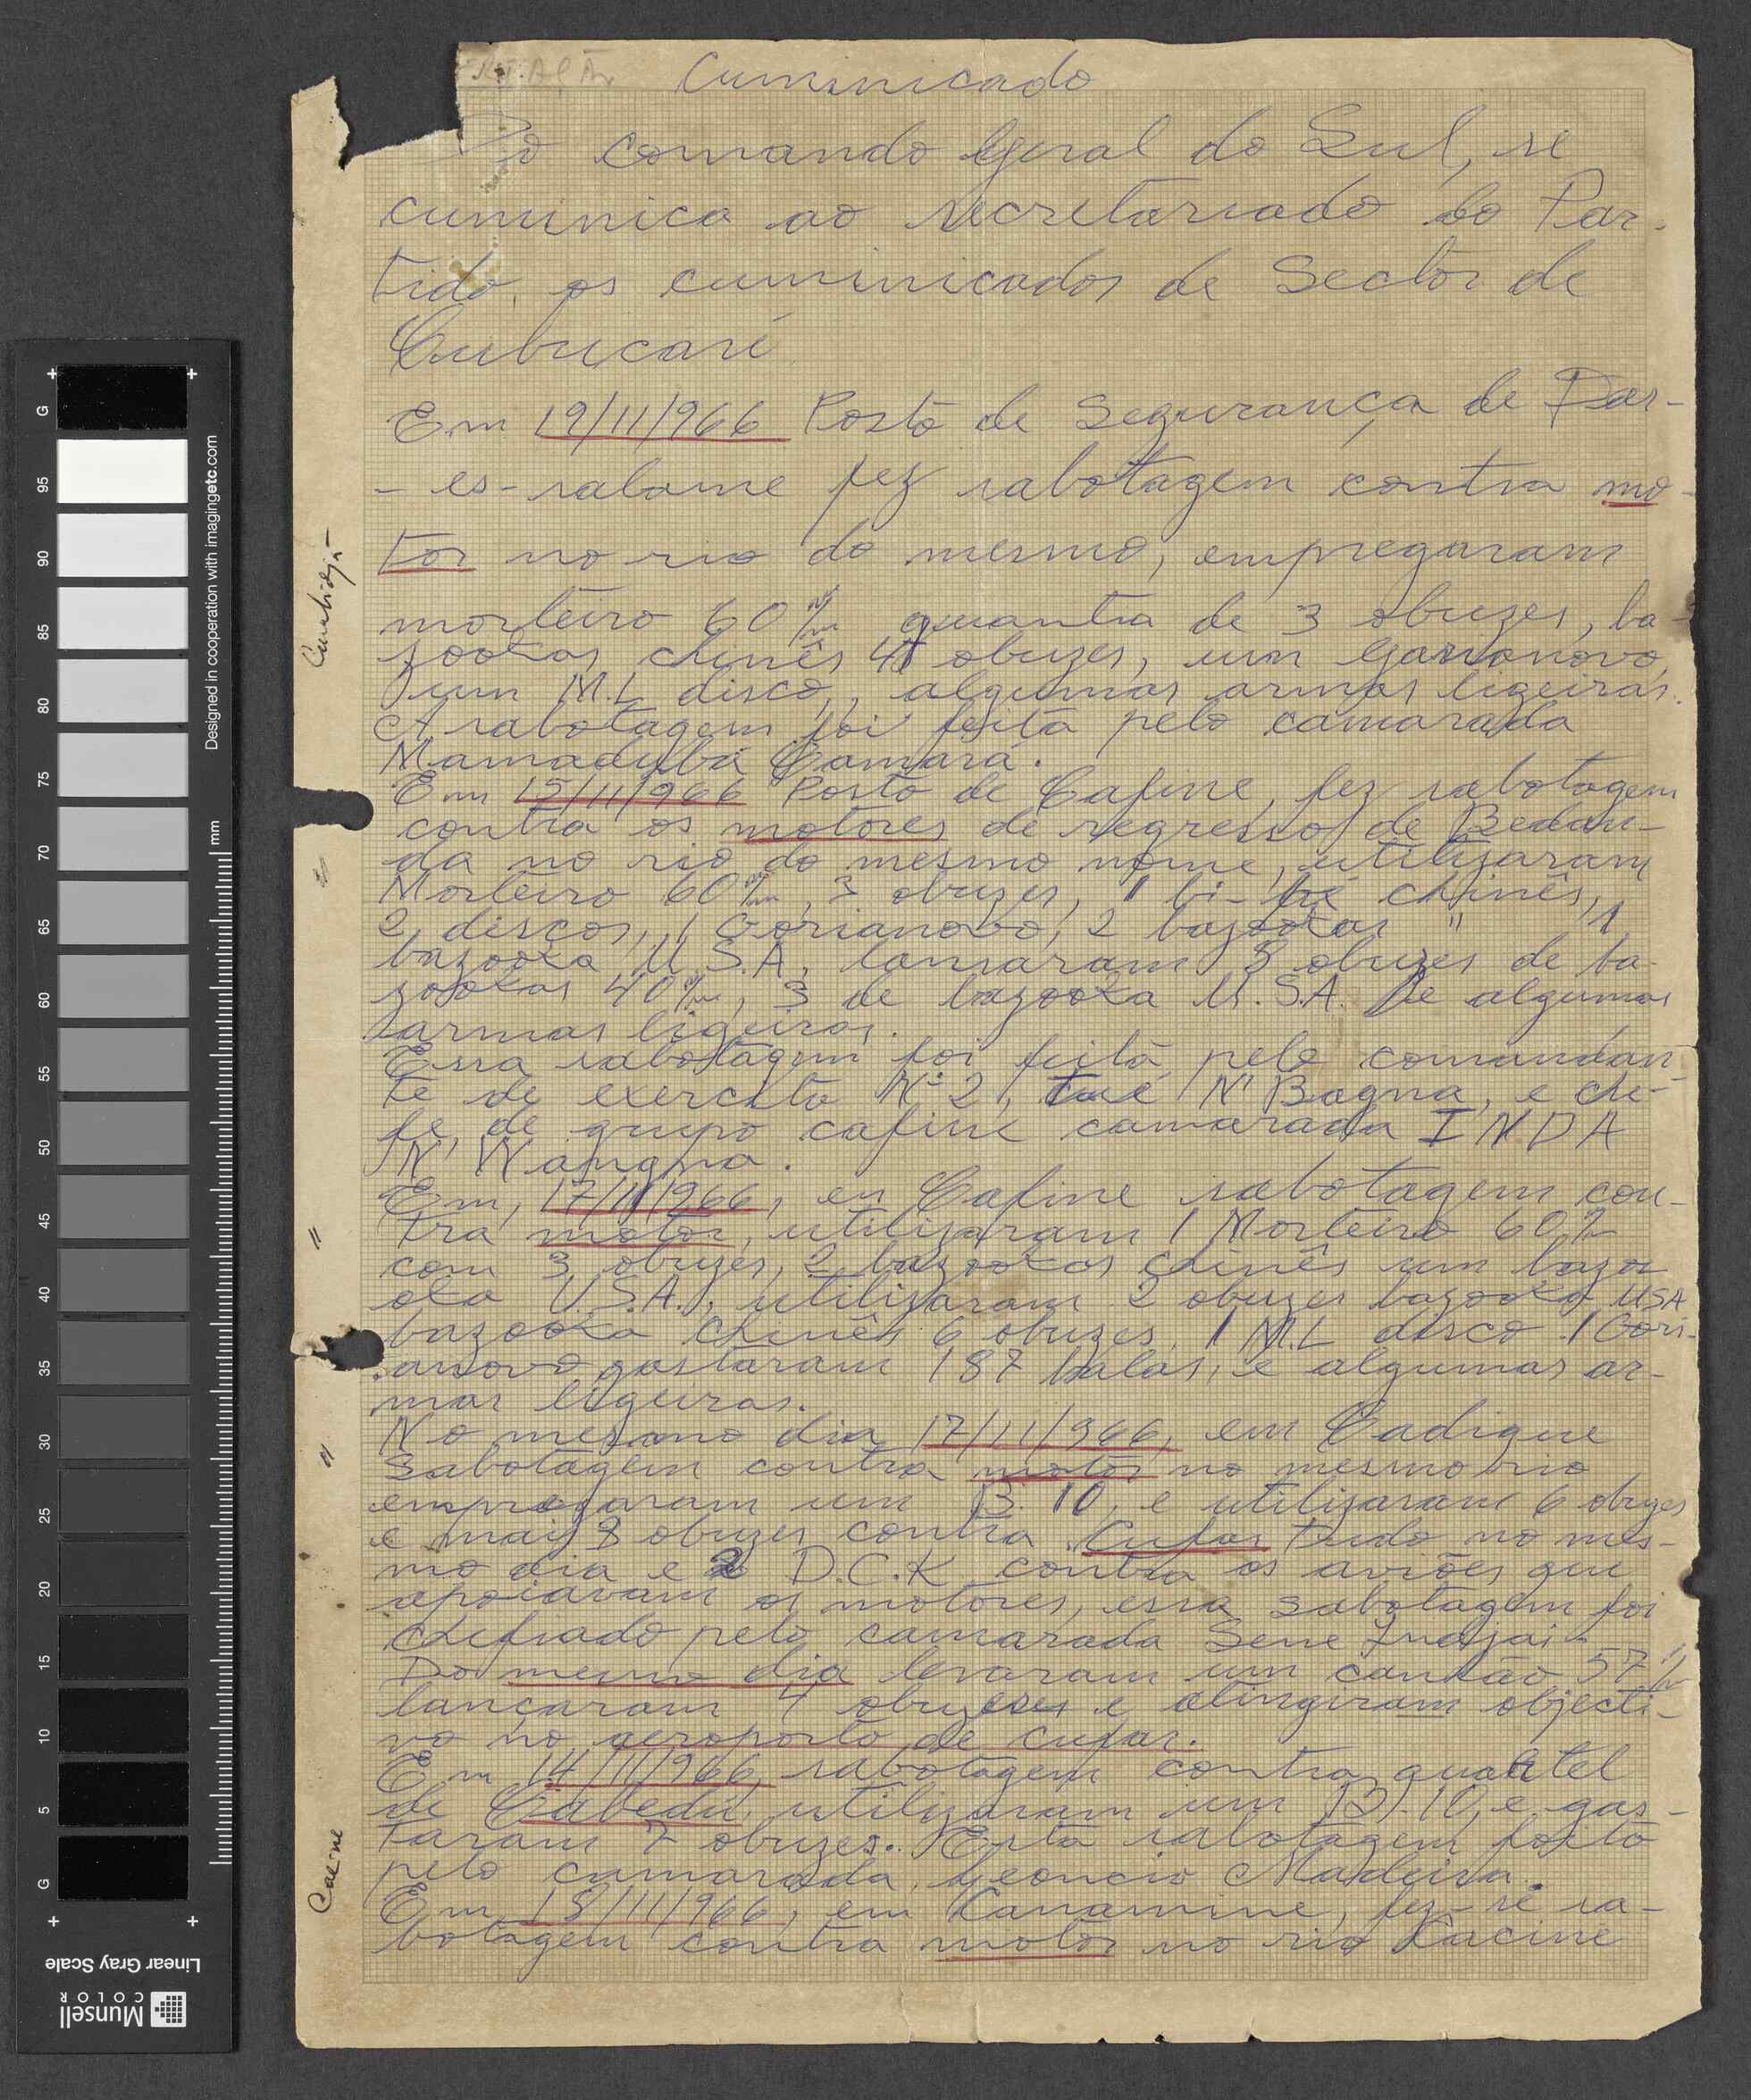 Cumunicado
Do comando Geral do Sul, se
cumunica ao secretariado do Par-
tido, os cumunicados de Sector de
Cubucaré
Em 19/11/966 Posto de Segurança de Dar-
- es-salame fez sabotagem contra mo-
tor no rio do mesmo, empregaram
morteiro 60 m/m quantia de 3 obuzes, ba-
zookas chinês 4 obuzes, um Gorianovo,
um M.L disco, algumas armas ligeiras.
A sabotagem foi feita pelo camarada
Mamadubá Camará.
Em 15/11/966 Posto de Cafine, fez sabotagem
contra os motores de regresso de Bedan-
da no rio do mesmo nome, utilizaram
Morteiro 60 m/m, 3 obuzes, 1 bi-pé chinês,
2 discos, 1 Gorianovo, 2 bazookas " 1
bazooka U.S.A, lansaram 3 obuzes de ba-
zookas 40 m/m, 3 de bazooka U.S.A. e algumas
armas ligeiras.
Essa sabotagem foi feita pelo comandan-
te de exercito Nº 2, tué N'Bagna, e che-
fe de grupo cafine camarada INDA
N'Wangna.
Em, 17/11/966, en Cafine sabotagem con-
tra motor, utilizaram 1 Morteiro 60 m/m
com 3 obuzes, 2 bazookas chinês um bazo
oka U.S.A., utilizaram 2 obuzes bazooka USA
bazooka chinês 6 obuzes, 1 M.L disco. 1 Gori-
anovo gastaram 187 balas, e algumas ar-
mas ligeiras.
No mesmo dia 17/11/966, em Cadique
sabotagem contra motor no mesmo rio
empregaram um B.10, e utilizaram 6 obuzes
e mais 3 obuzes contra Cufar tudo no mes-
mo dia e 2 D.C.K contra os aviões que
apoiavam os motores, essa sabotagem foi
chefiado pelo camarada Sene Indjai -
Do mesmo dia levaram um canhão 57 m/m
lançaram 4 obuzeses e atingiram objecti-
vo no aeroporto de cufar.
Em 14/11/966, sabotagem contra quartel
de Cabedú, utilizaram um B.10, e gas-
taram 7 obuzes.. Esta sabotagem foito
pelo camarada, Leoncio Madeira.
Em 18/11/966, em Canamine, fez-se sa-
botagem contra motor no rio Cacine
Cumbidjã
"
"
Cacine
Designed in cooperation with imagingetc.com
mm
G
95
90
85
80
75
70
65
60
55
50
45
40
35
30
25
20
15
10
5
G
Linear Gray Scale
Munsell
COLOR